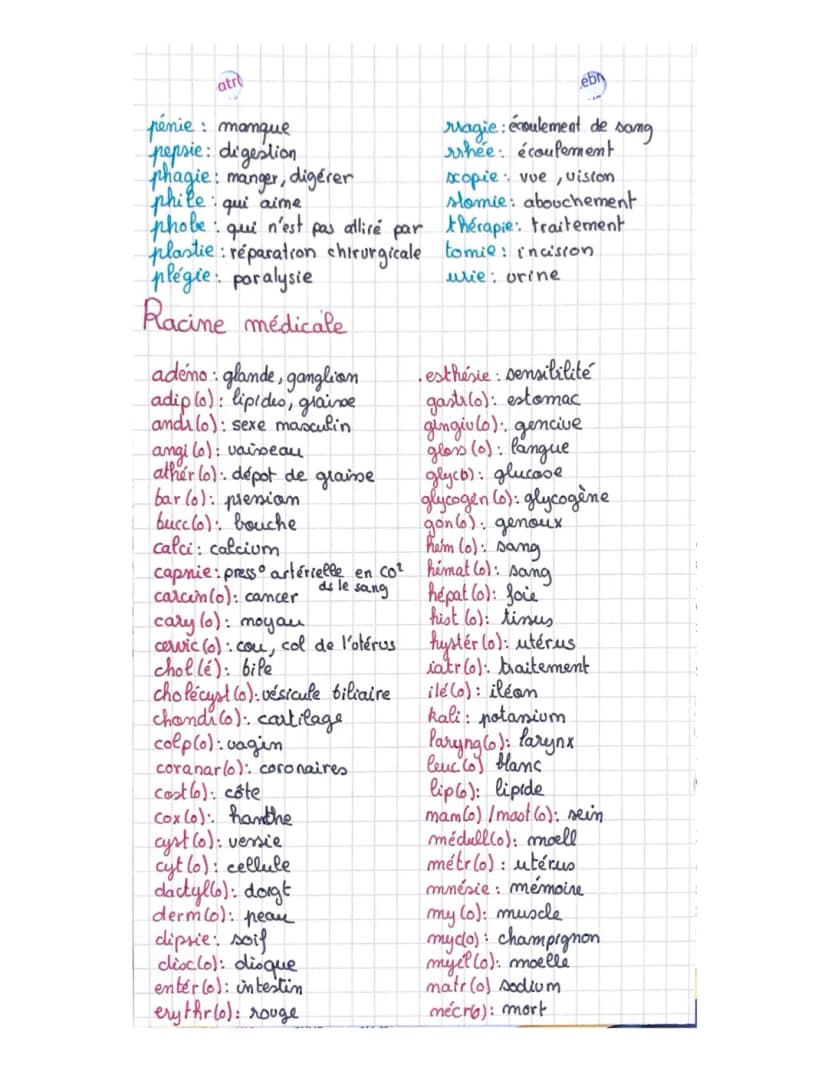 atrl
ebn
pénie : manque
pepsie : digestion
phagie : manger, digérer
phile : qui aime
phobe : qui n'est pas attiré par
plastie : réparation chirurgicale
plégie : paralysie
rragie : écoulement de sang
rrhée : écoulement
scopie : vue, vision
stomie : abouchement
thérapie : traitement
tomie : incision
urie : urine
Racine médicale
adéno : glande, ganglion
adip(o) : lipides, graisse
andr(o) : sexe masculin
angi(o) : vaisseau
athér(o) : dépot de graisse
bar(o) : pression
bucc(o) : bouche
calci : calcium
capnie : press° artérielle en CO²
ds le sang
carcin(o) : cancer
cary(o) : noyau
cervic(o) : cou, col de l'utérus
chol(é) : bile
cholécyst(o) : vésicule biliaire
chondr(o) : cartilage
colp(o) : vagin
coronar(o) : coronaires
cost(o) : côte
cox(o) : hanche
cyst(o) : vessie
cyt(o) : cellule
dactyl(o) : doigt
derm(o) : peau
dipsie : soif
disc(o) : disque
entér(o) : intestin
erythr(o) : rouge
. esthésie : sensibilité
gastr(o) : estomac
gingiv(o) : gencive
gloss(o) : langue
glyc(o) : glucose
glycogén(o) : glycogène
gon(o) : genoux
hém(o) : sang
hémat(o) : sang
hépat(o) : foie
hist(o) : tissus
hystér(o) : utérus
iatr(o) : traitement
ilé(o) : iléon
kali : potassium
laryng(o) : larynx
leuc(o) blanc
lip(o) : lipide
mam(o) / mast(o) : sein
médull(o) : moell
métr(o) : utérus
mnésie : mémoire
my(o) : muscle
myc(o) : champignon
myél(o) : moelle
natr(o) sodium
nécr(o) : mort